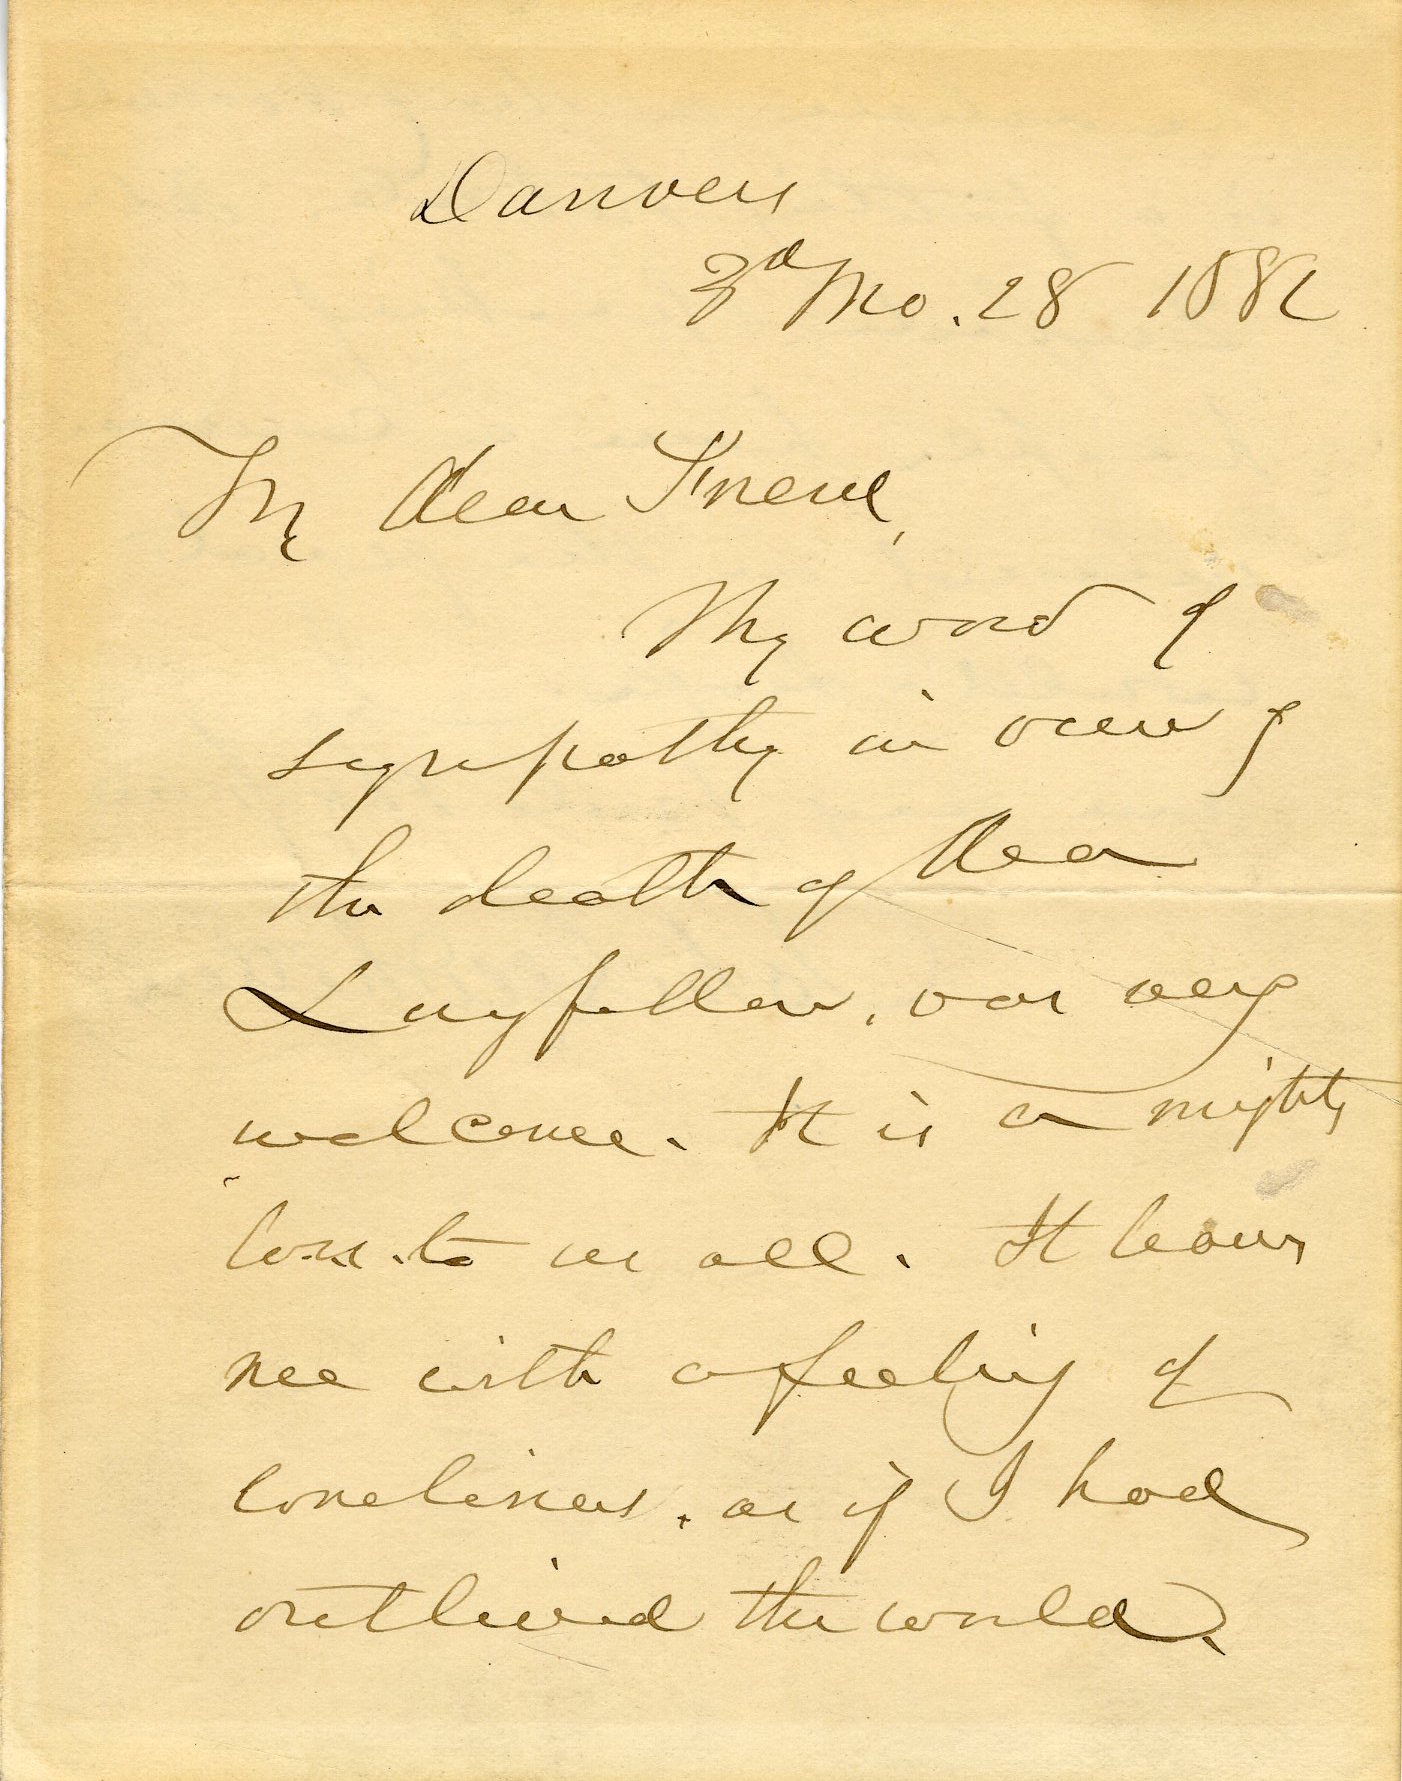 Danvers
3d Mo. 28 1882
My dear Friend,
Thy word of
sympathy in view of
the death of dear
Longfellow, was very
welcome. It is a mighty
loss to us all. It leaves
me with a feeling of
loneliness, as if I had
outlived the world.